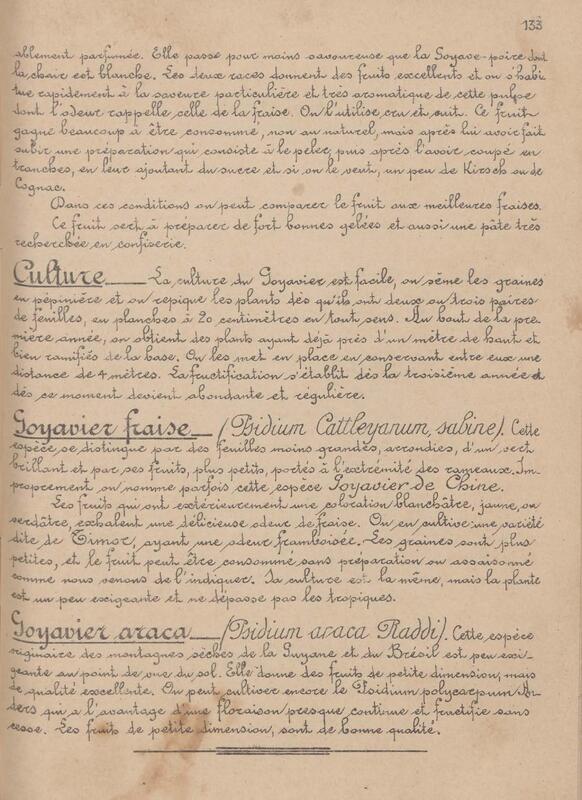 133
ablement parfumée. Elle passe pour moins savoureuse que la Goyave-poire dont
la chair est blanche. Les deux races donnent des fruits excellents et on s'habi
tue rapidement à la saveure particulière et très aromatique de cette pulpe
dont l'odeur rappelle celle de la fraise. On l'utilise cru et cuit. Ce fruit
gagne beaucoup à être consommé, non au naturel, mais après lui avoir fait
subir une préparation qui consiste à le peler, puis après l'avoir coupé en
tranches, en leur ajoutant du sucre et si on le veut, un peu de Kirsch ou de
Cognac.
Dans ces conditions on peut comparer le fruit aux meilleures fraises.
Ce fruit sert à préparer de fort bonnes gelées et aussi une pâte très
recherchée en confiserie.
Culture — La culture du Goyavier est facile, on sème les graines
en pépinière et on repique les plants dès qu'ils ont deux ou trois paires
de feuilles, en planches à 20 centimètres en tout sens. Au bout de la pre-
mière année, on obtient des plants ayant déjà près d'un mètre de haut et
bien ramifiés de la base. On les met en place en conservant entre eux une
distance de 4 mètres. La fructification s'établit dès la troisième année et
dès ce moment devient abondante et régulière.
Goyavier fraise — (Psidium Cattleyanum, sabine). Cette
espèce se distingue par des feuilles moins grandes, arrondies, d'un vert
brillant et par ses fruits, plus petits, portés à l'extrémité des rameaux. Im-
proprement on nomme parfois cette espèce Goyavier de Chine.
Les fruits qui ont extérieurement une coloration blanchâtre, jaune, ou
verdâtre, exhalent une délicieuse odeur de fraise. On en cultive une variété
dite de Timor, ayant une odeur framboisée. Les graines sont plus
petites, et le fruit peut être consommé sans préparation ou assaisonné
comme nous venons de l'indiquer. Sa culture est la même, mais la plante
est un peu exigeante et ne dépasse pas les tropiques.
Goyavier araca — (Psidium araca Raddi). Cette, espèce
originaire des montagnes sèches de la Guyane et du Brésil est peu exi-
geante au point de vue du sol. Elle donne des fruits de petite dimension, mais
de qualité excellente. On peut cultiver encore le Psidium polycarpum An-
ders qui a l'avantage d'une floraison presque continue et fructifie sans
cesse. Les fruits de petite dimension, sont de bonne qualité.